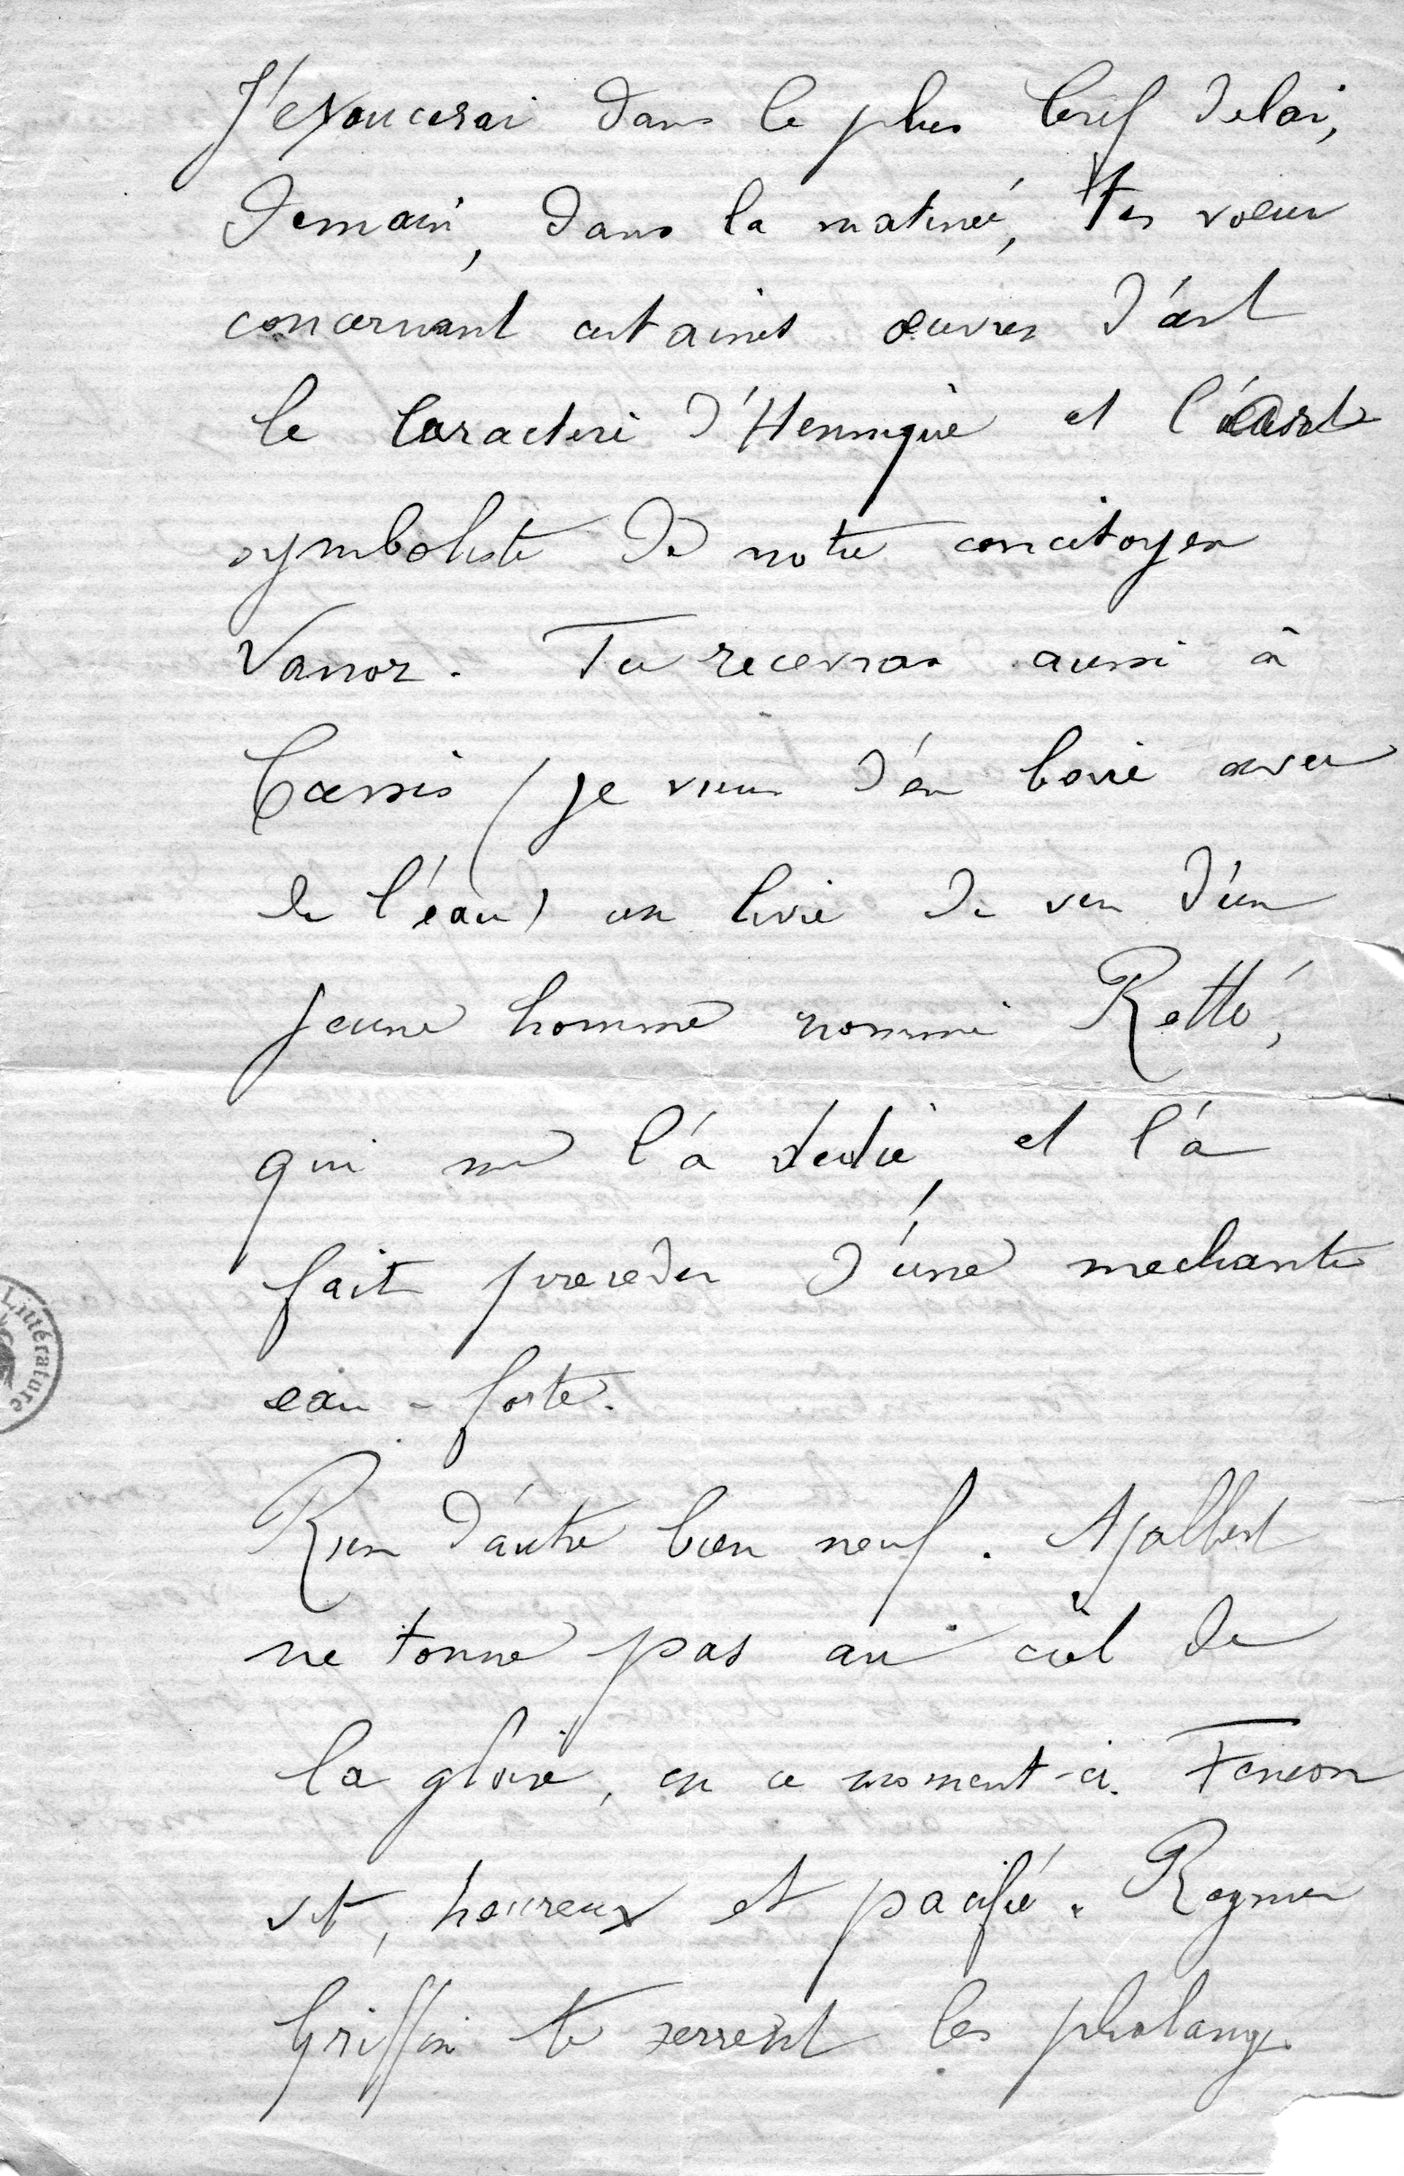 J'exaucerai dans le plus bref delai,
Demain, dans la matineé, tes voeux
concernant certaines œuvres d'art
le Caractère d'Hennique et l'art
symboliste de notre concitoyen
Vanor. Tu recevras aussi à
Cassis (je viens d'en boire avec
de l'eau) un livre de vers d'un
jeune homme nommé Retté,
qui me l'a dedié, et l'a
fait preceder d'une mechante
eau-forte.
Rien d'autre bien neuf. Ajalbert
ne tonne pas au ciel de
la gloire, en ce moment-ci. Feneon
vit, heureux et pacifié. Regnier
Griffin te serrent les phalanges
Littérature